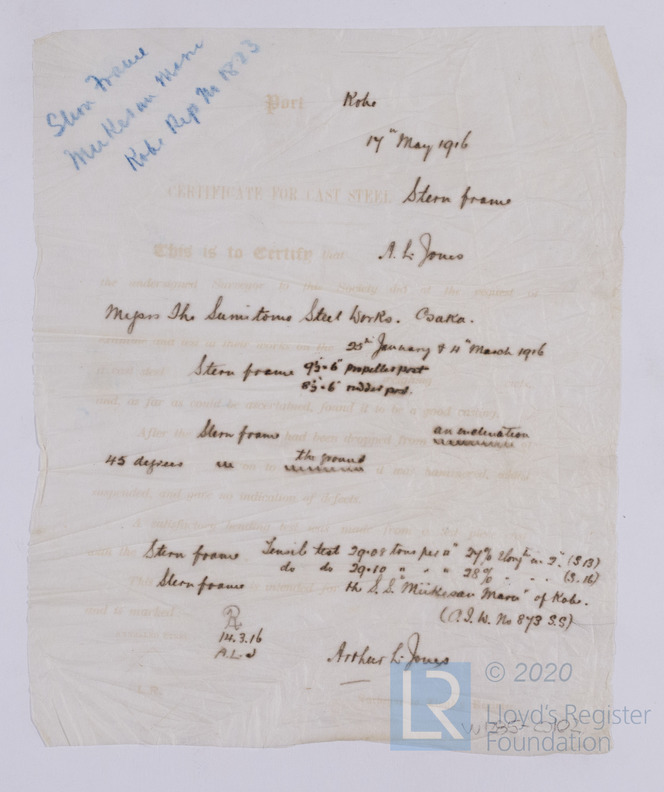 Stern Frame
Miikesan Maru
Kobe Rep No 1823
Port Kobe
17th May 1916
CERTIFICATE FOR CAST STEEL Stern frame
This is to Certify that A. L. Jones
the undersigned Surveyor to this Society did at the request of
Messrs The Sumitomo Steel Works. Osaka.
examine and test at their works on the 25th January & 4th March 1916
Stern frame 9½ - 6" propeller post
8½ - 6" rudder post.
and, as far as could be ascertained, found it to be a good casting.
After the Stern frame had been dropped from an inclination
45 degrees on to the ground it was hammered,
suspended, and gave no indication of defects.
A satisfactory bending test was made from a
with the Stern frame Tensile test 29.08 tons per □" 27% Elongn in 2" (S 13)
do do 29.10 " " " 28% " " " (S. 16)
This Stern frame is intended for the S.S. "Miikesan Maru" of Kobe.
and is marked (O.I.W. No 873 S.S)
R
14.3.16
A.L.J
Arthur L. Jones
LR
© 2020
Lloyd's Register
Foundation